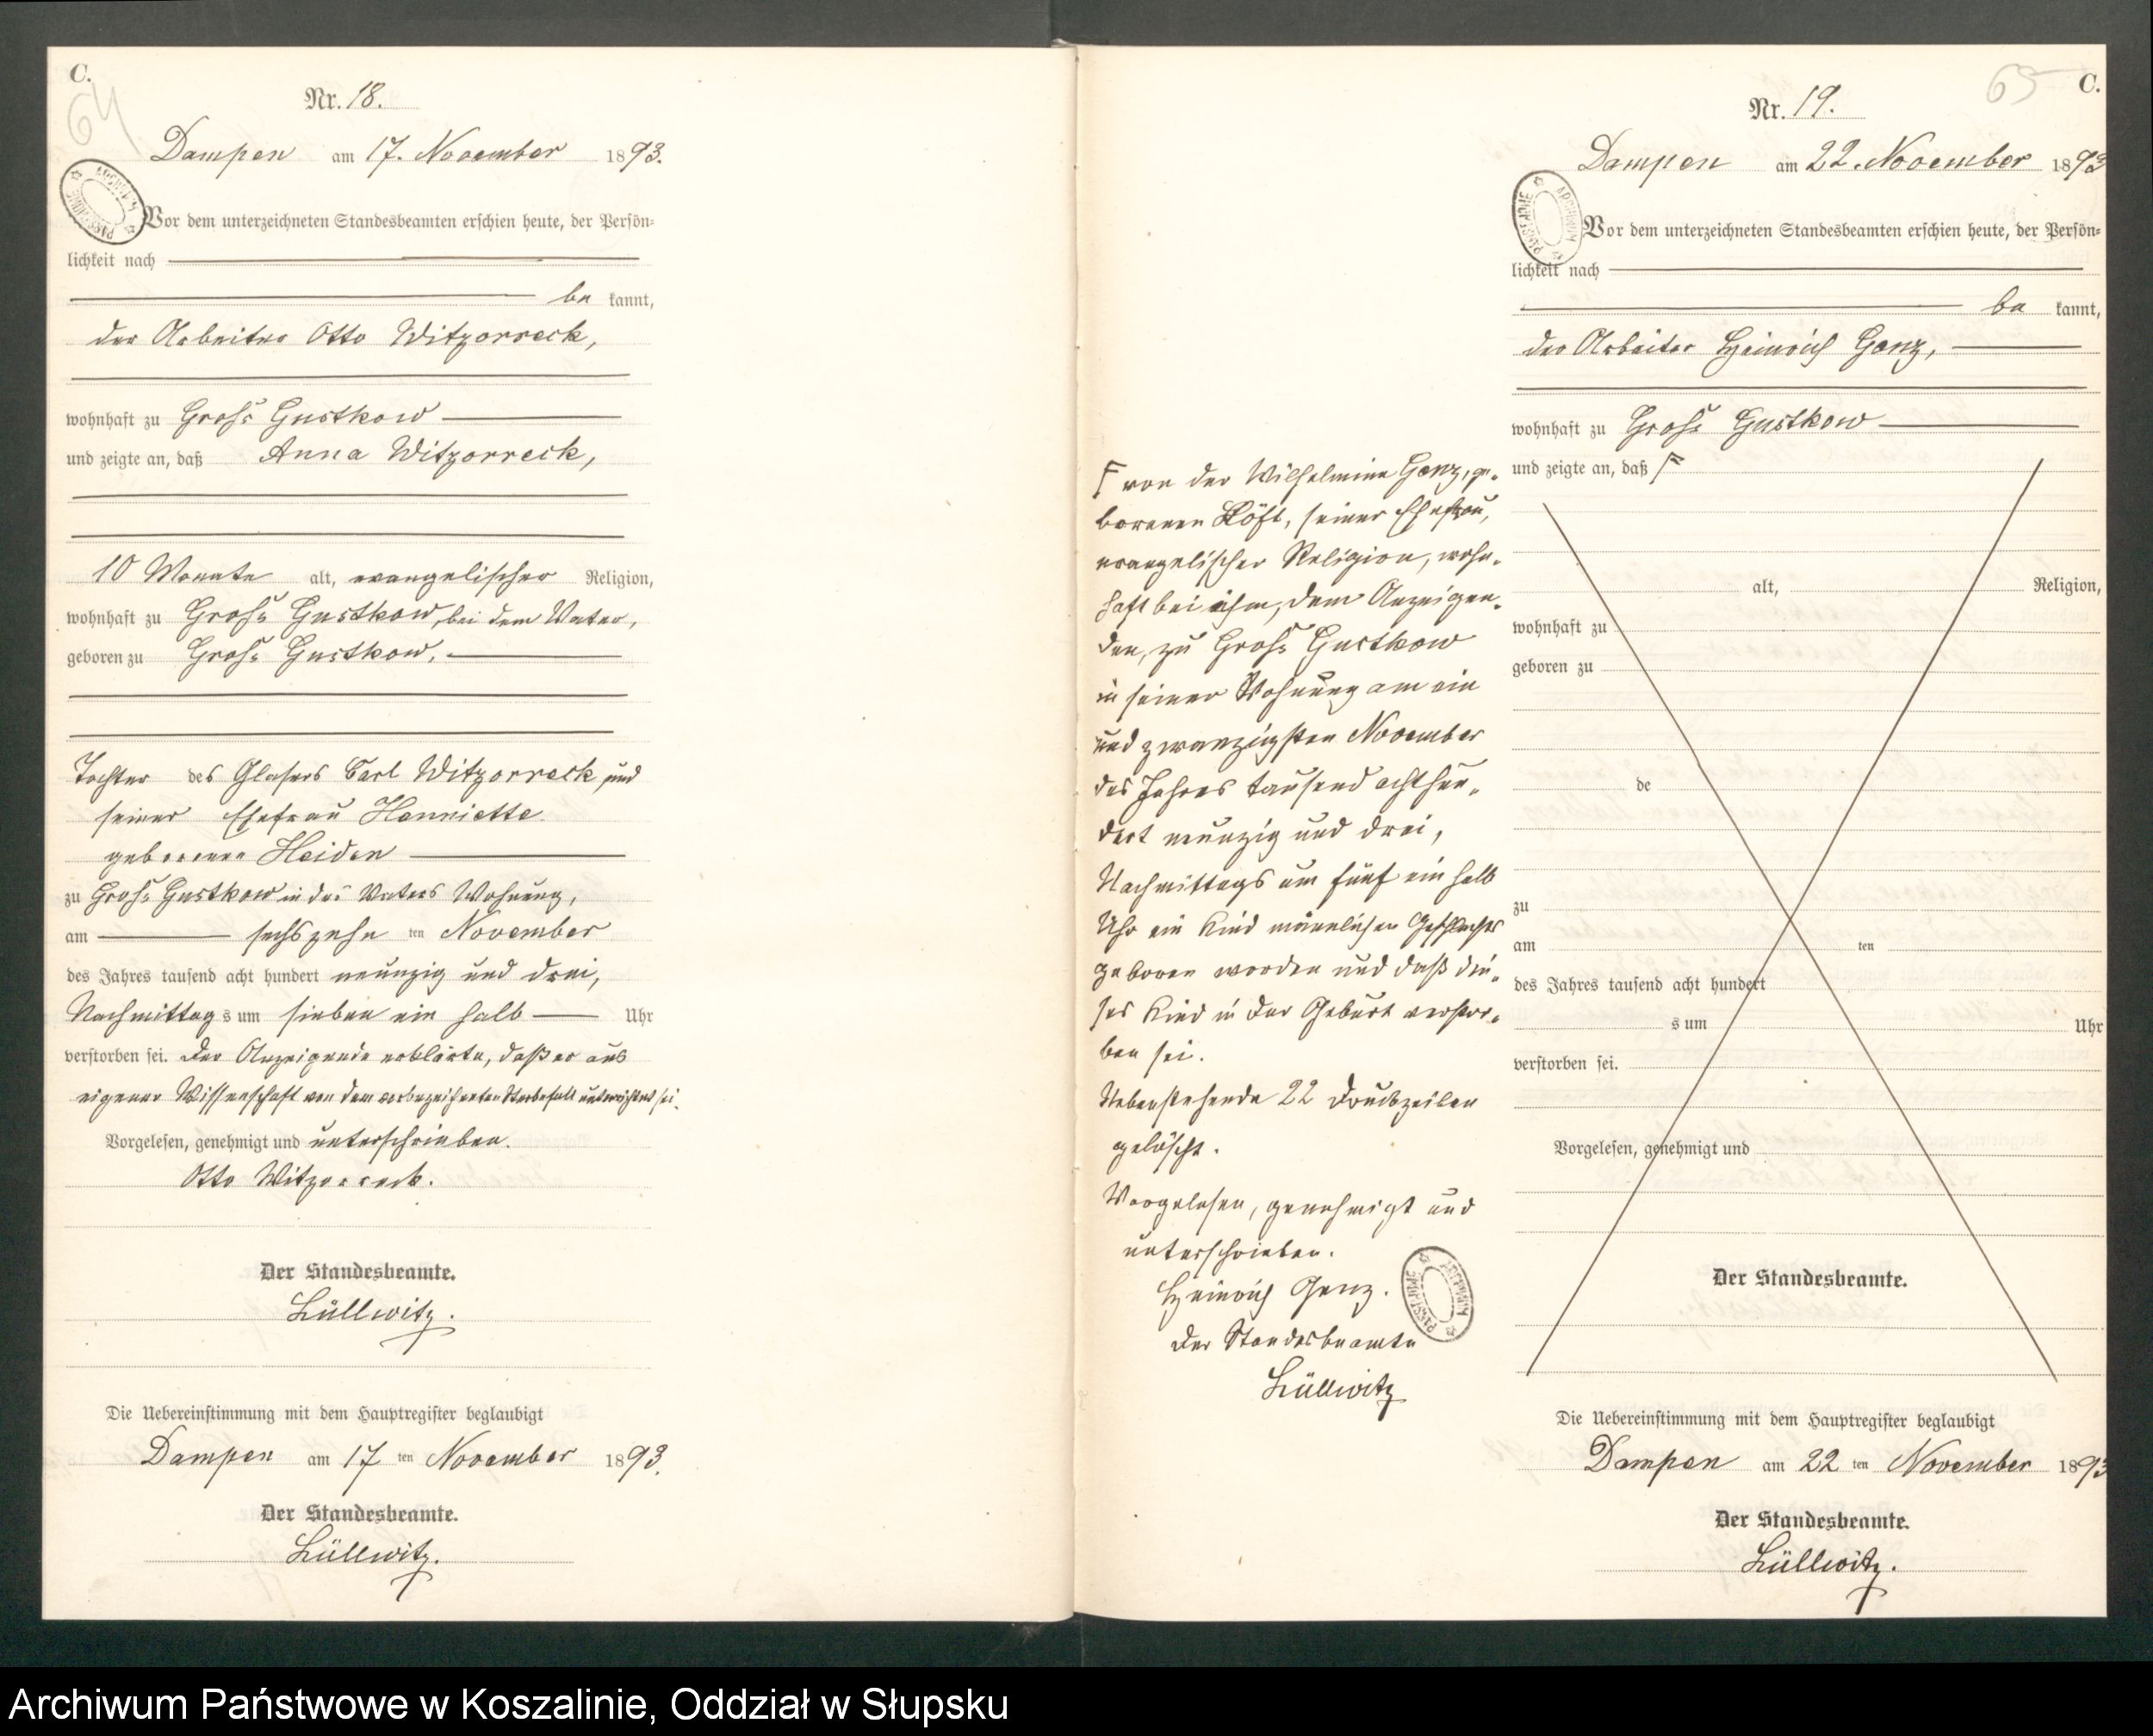 C.
64
Nr. 18.
Dampen am 17. November 1893.
Vor dem unterzeichneten Standesbeamten erschien heute, der Persön=
lichkeit nach
be kannt,
der Arbeiter Otto Witzorreck,
wohnhaft zu Groß Gustkow
und zeigte an, daß Anna Witzorreck,
10 Monate alt, evangelischer Religion,
wohnhaft zu Groß Gustkow, bei dem Vater,
geboren zu Groß Gustkow,
Tochter des Glasers Carl Witzorreck und
seiner Ehefrau Henriette
geborenen Heiden
zu Groß Gustkow in des Vaters Wohnung,
am sechszehn ten November
des Jahres tausend acht hundert neunzig und drei,
Nachmittag s um sieben ein halb Uhr
verstorben sei. Der Anzeigende erklärte, daß er aus
eigener Wissenschaft von dem vorbezeichneten Sterbefall unterrichtet sei.
Vorgelesen, genehmigt und unterschrieben.
Otto Witzorreck.
Der Standesbeamte.
Lüllwitz.
Die Uebereinstimmung mit dem Hauptregister beglaubigt
Dampen am 17 ten November 1893.
Der Standesbeamte.
Lüllwitz.
65 C.
Nr. 19.
Dampen am 22. November 1893
Vor dem unterzeichneten Standesbeamten erschien heute, der Persön=
lichkeit nach
be kannt,
der Arbeiter Heinrich Genz,
wohnhaft zu Groß Gustkow
und zeigte an, daß
von der Wilhelmine Genz, ge-
borenen Köft, seiner Ehefrau,
evangelischer Religion, wohn-
haft bei ihm, dem Anzeigen-
den, zu Groß Gustkow
in seiner Wohnung am ein
und zwanzigsten November
des Jahres tausend achthun-
dert neunzig und drei,
Nachmittags um fünf ein halb
Uhr ein Kind männlichen Geschlechts
geboren worden und daß die-
ses Kind in der Geburt verstor-
ben sei.
Nebenstehende 22 Druckzeilen
gelöscht.
Vorgelesen, genehmigt und
unterschrieben.
Heinrich Genz.
Der Standesbeamte
Lüllwitz
alt, Religion,
wohnhaft zu
geboren zu
de
zu
am ten
des Jahres tausend acht hundert
s um Uhr
verstorben sei.
Vorgelesen, genehmigt und
Der Standesbeamte.
Die Uebereinstimmung mit dem Hauptregister beglaubigt
Dampen am 22 ten November 1893
Der Standesbeamte.
Lüllwitz.
Archiwum Państwowe w Koszalinie, Oddział w Słupsku